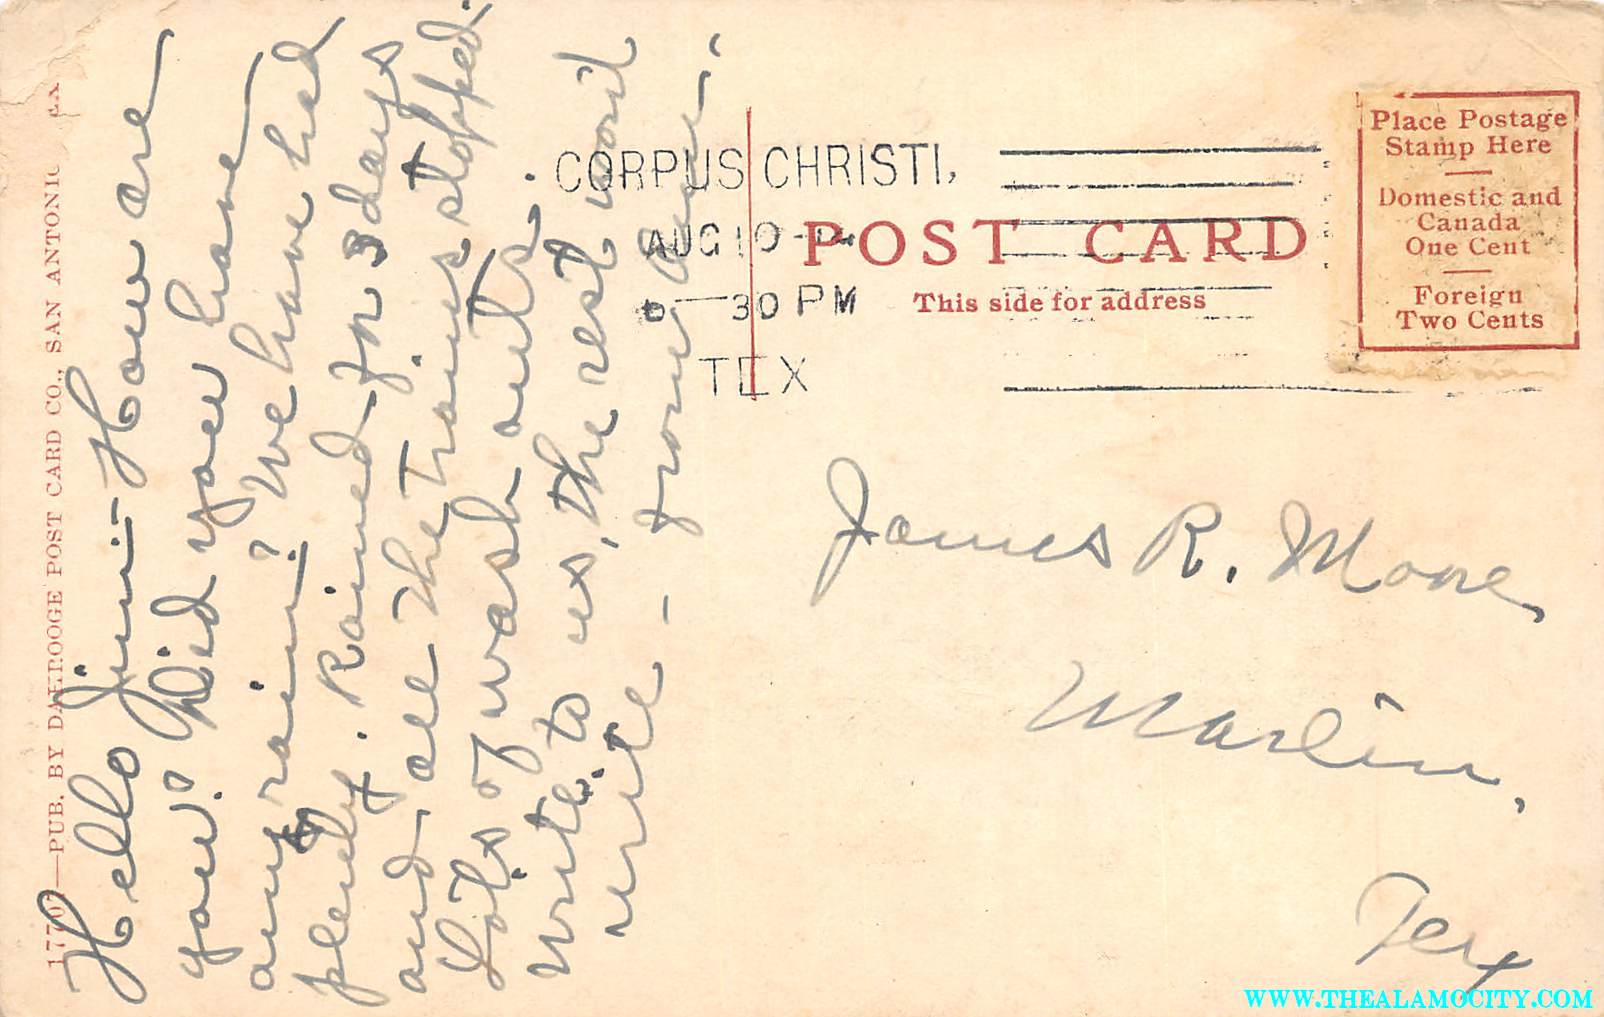 Hello Jim:- How are
you? Did you have
any rain? We have had
plenty. Rained for 3 days
and all the trains stopped.
Lots of wash outs.
Write to us, the rest won't
write - from
17707—PUB. BY DAHROOGE POST CARD CO., SAN ANTONIO
CORPUS CHRISTI,
AUG 10
30 PM
TEX
POST CARD
This side for address
Place Postage
Stamp Here
Domestic and
Canada
One Cent
Foreign
Two Cents
James R. Moore,
Marlin,
Tex
WWW.THEALAMOCITY.COM